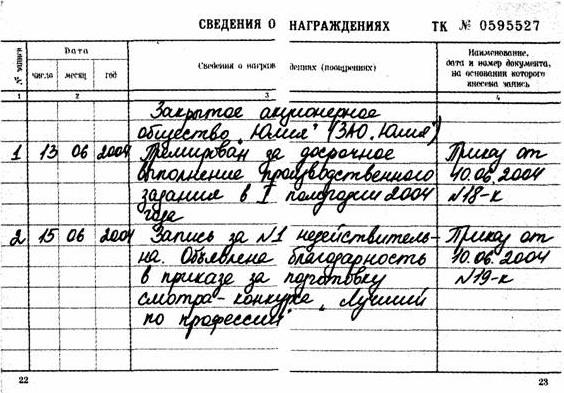 СВЕДЕНИЯ О НАГРАЖДЕНИЯХ ТК № 0595527
№ записи Дата Сведения о награждениях (поощрениях) Наименование, дата и номер документа, на основании которого внесена запись
число месяц год
1 2 3 4
Закрытое акционерное
общество „Юлия" (ЗАО „Юлия")
1 13 06 2004 Премирован за досрочное Приказ от
выполнение производственного 10.06.2004
задания в I полугодии 2004 №18-к
года
2 15 06 2004 Запись за №1 недействитель- Приказ от
на. Объявлена благодарность 10.06.2004
в приказе за подготовку №19-к
смотра-конкурса „Лучший
по профессии"
22 23